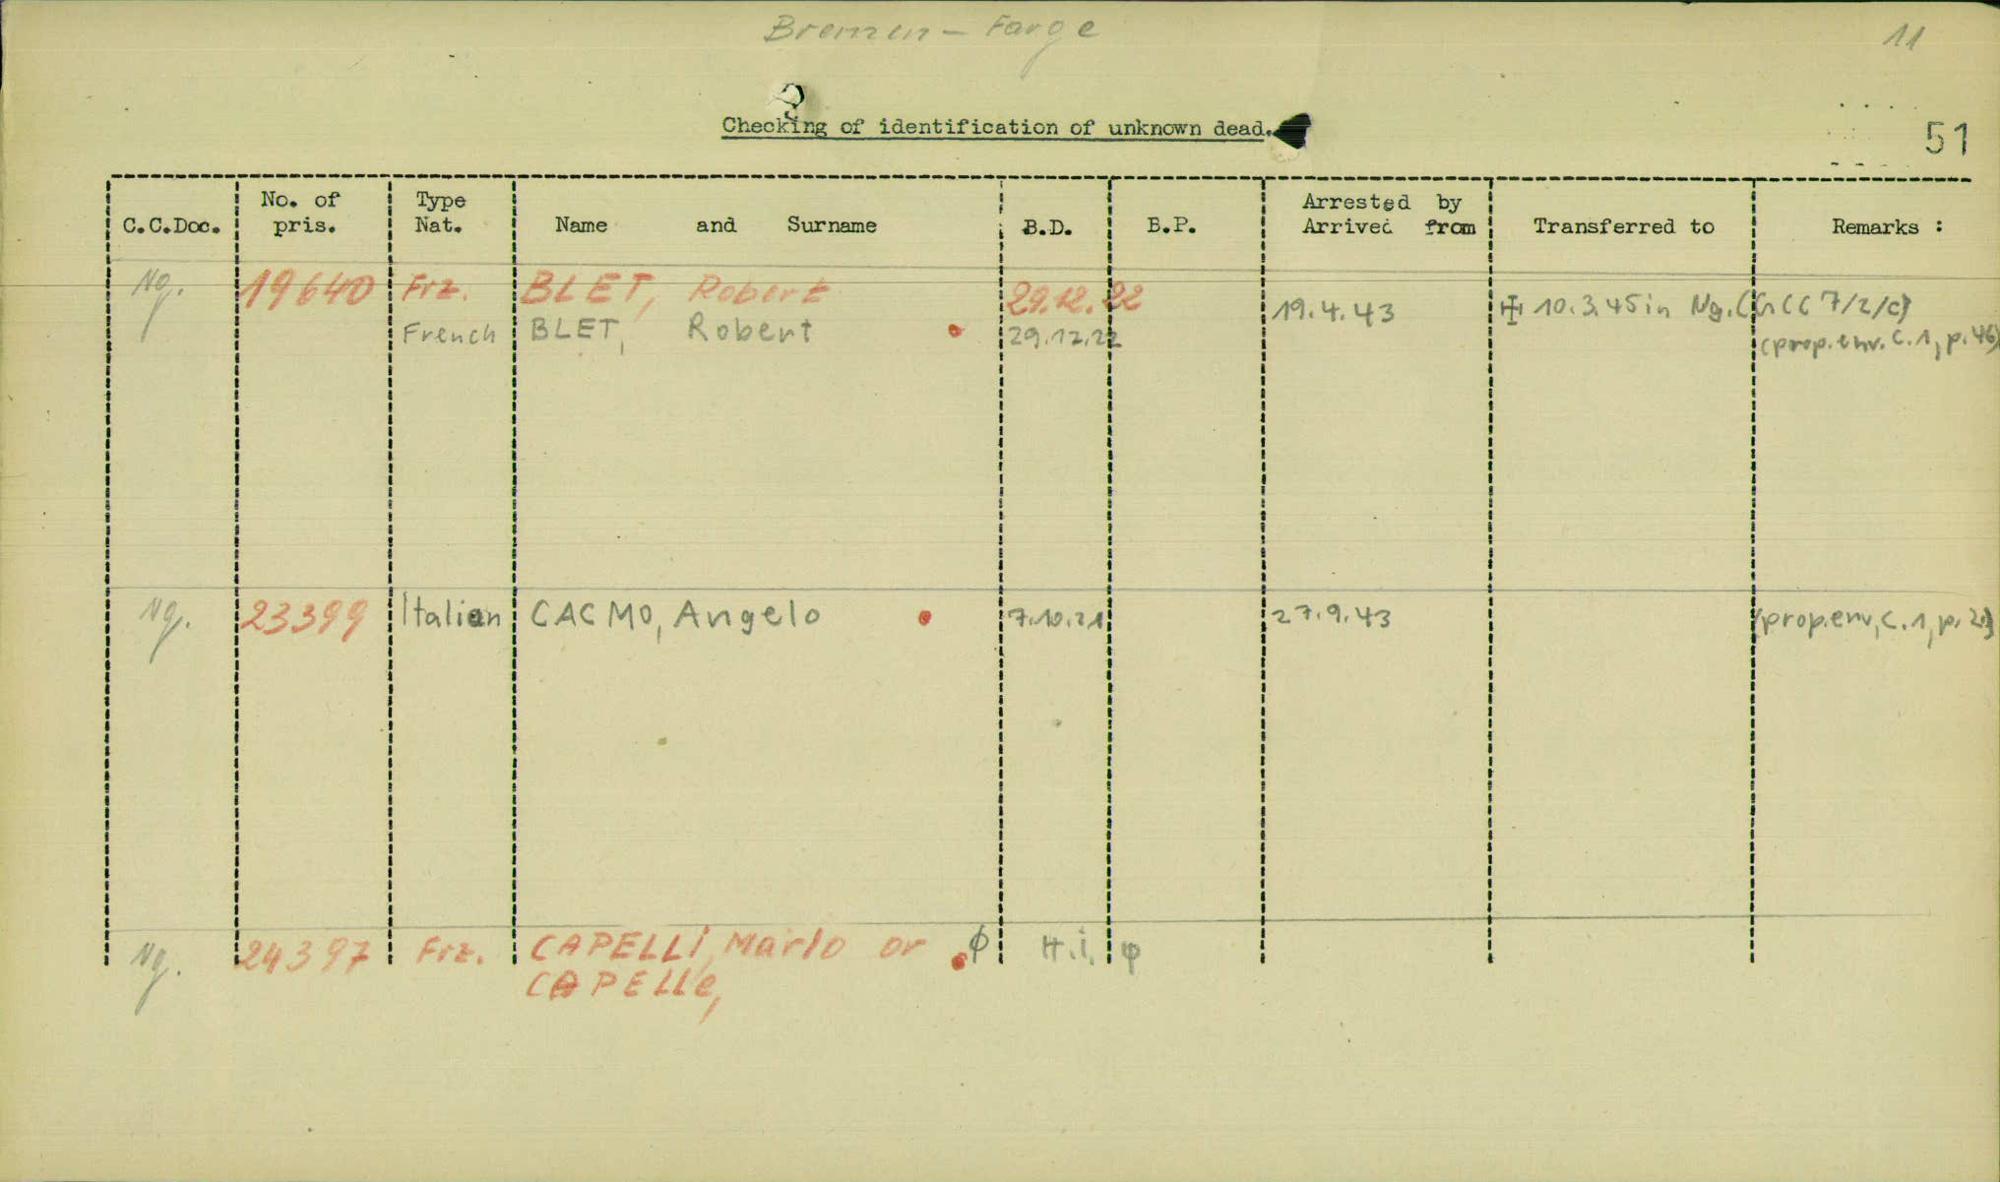 Bremen - Farge
11
Checking of identification of unknown dead.
51
C.C.Doc. No. of pris. Type Nat. Name and Surname B.D. B.P. Arrested by Arrived from Transferred to Remarks :
Ng. 19640 Frz. BLET, Robert 29.12.22
French BLET, Robert 29.12.22 19.4.43 10.3.45 in Ng. (GCC 7/2/c)
(prop.env. C.1, p.46)
Ng. 23399 Italian CACMO, Angelo 7.10.21 27.9.43 (prop.env, C.1, p.2)
Ng. 24397 Frz. CAPELLI, Mario or H.i.
CAPELLE,